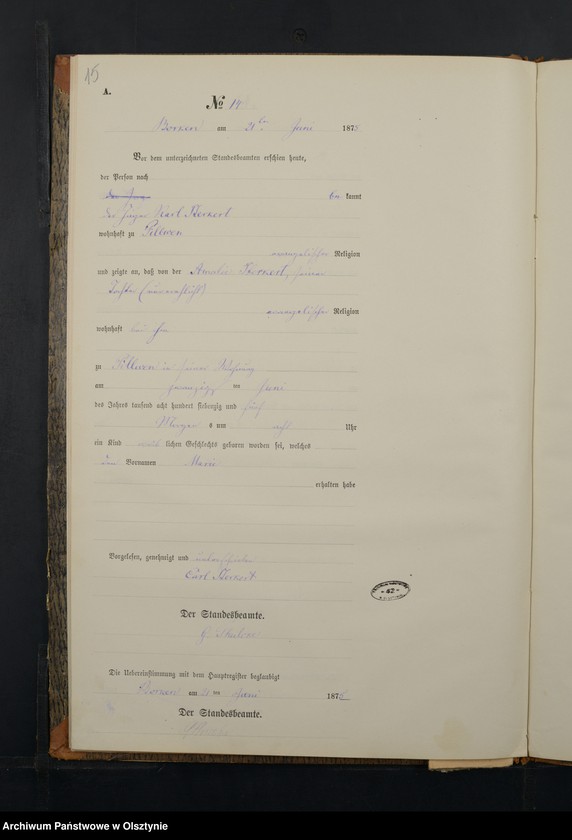 15
A.
№ 14
Borken am 21ten Juni 1875
Vor dem unterzeichneten Standesbeamten erschien heute,
der Person nach
kannt
der Karl
wohnhaft zu
evangelischer Religion
und zeigte an, daß von der Amalie
Tochter
evangelischer Religion
wohnhaft bei ihm
zu in seiner Wohnung
am zwanzigsten Juni
des Jahres tausend acht hundert siebenzig und fünf
Morgens um acht Uhr
ein Kind weiblichen Geschlechts geboren worden sei, welches
den Vornamen Marie
erhalten habe
Vorgelesen, genehmigt und unterschrieben
Carl
Der Standesbeamte.
Die Uebereinstimmung mit dem Hauptregister beglaubigt
Borken am 21 ten Juni 187
Der Standesbeamte.
- 42 -
Archiwum Państwowe w Olsztynie